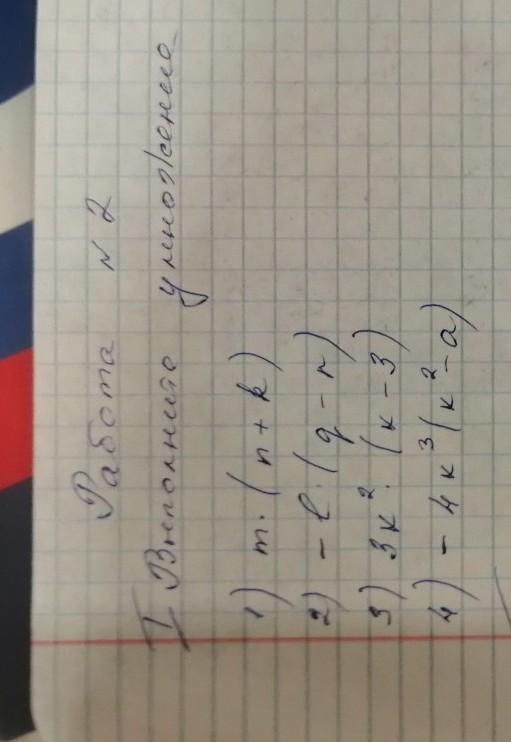 Работа N 2
I Выполните умножение
1) m·(n+k)
2) -l·(q-r)
3) 3k²·(k-3)
4) -4k³(k²-a)